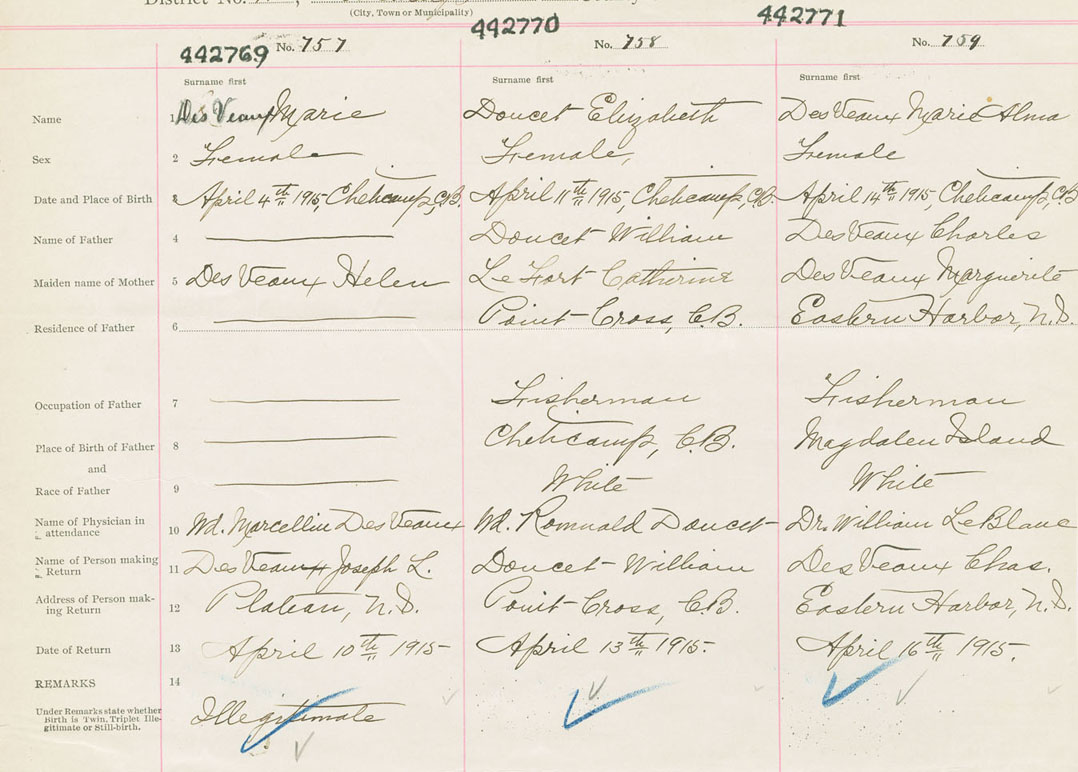 District No.
(City, Town or Municipality)
442769 No. 757
442770 No. 758
442771 No. 759
Surname first Surname first Surname first
Name 1 DesVeaux Marie Doucet Elizabeth DesVeaux Marie Alma
Sex 2 Female Female, Female
Date and Place of Birth 3 April 4th 1915, Cheticamp, C.B. April 11th 1915, Cheticamp, C.B. April 14th 1915, Cheticamp, C.B
Name of Father 4 Doucet William DesVeaux Charles
Maiden name of Mother 5 DesVeaux Helen LeFort Catherine DesVeaux Marguerite
Residence of Father 6 Point Cross, C.B. Eastern Harbor, N.S.
Occupation of Father 7 Fisherman Fisherman
Place of Birth of Father 8 Cheticamp, C.B. Magdalen Island
and
Race of Father 9 White White
Name of Physician in
attendance 10 Wd. Marcellin DesVeaux Wd. Romuald Doucet Dr. William LeBlanc
Name of Person making
Return 11 DesVeaux Joseph L. Doucet William DesVeaux Chas.
Address of Person mak-
ing Return 12 Plateau, N.S. Point Cross, C.B. Eastern Harbor, N.S.
Date of Return 13 April 10th 1915 April 13th 1915. April 16th 1915.
REMARKS 14
Under Remarks state whether
Birth is Twin, Triplet Ille-
gitimate or Still-birth.
Illegitimate